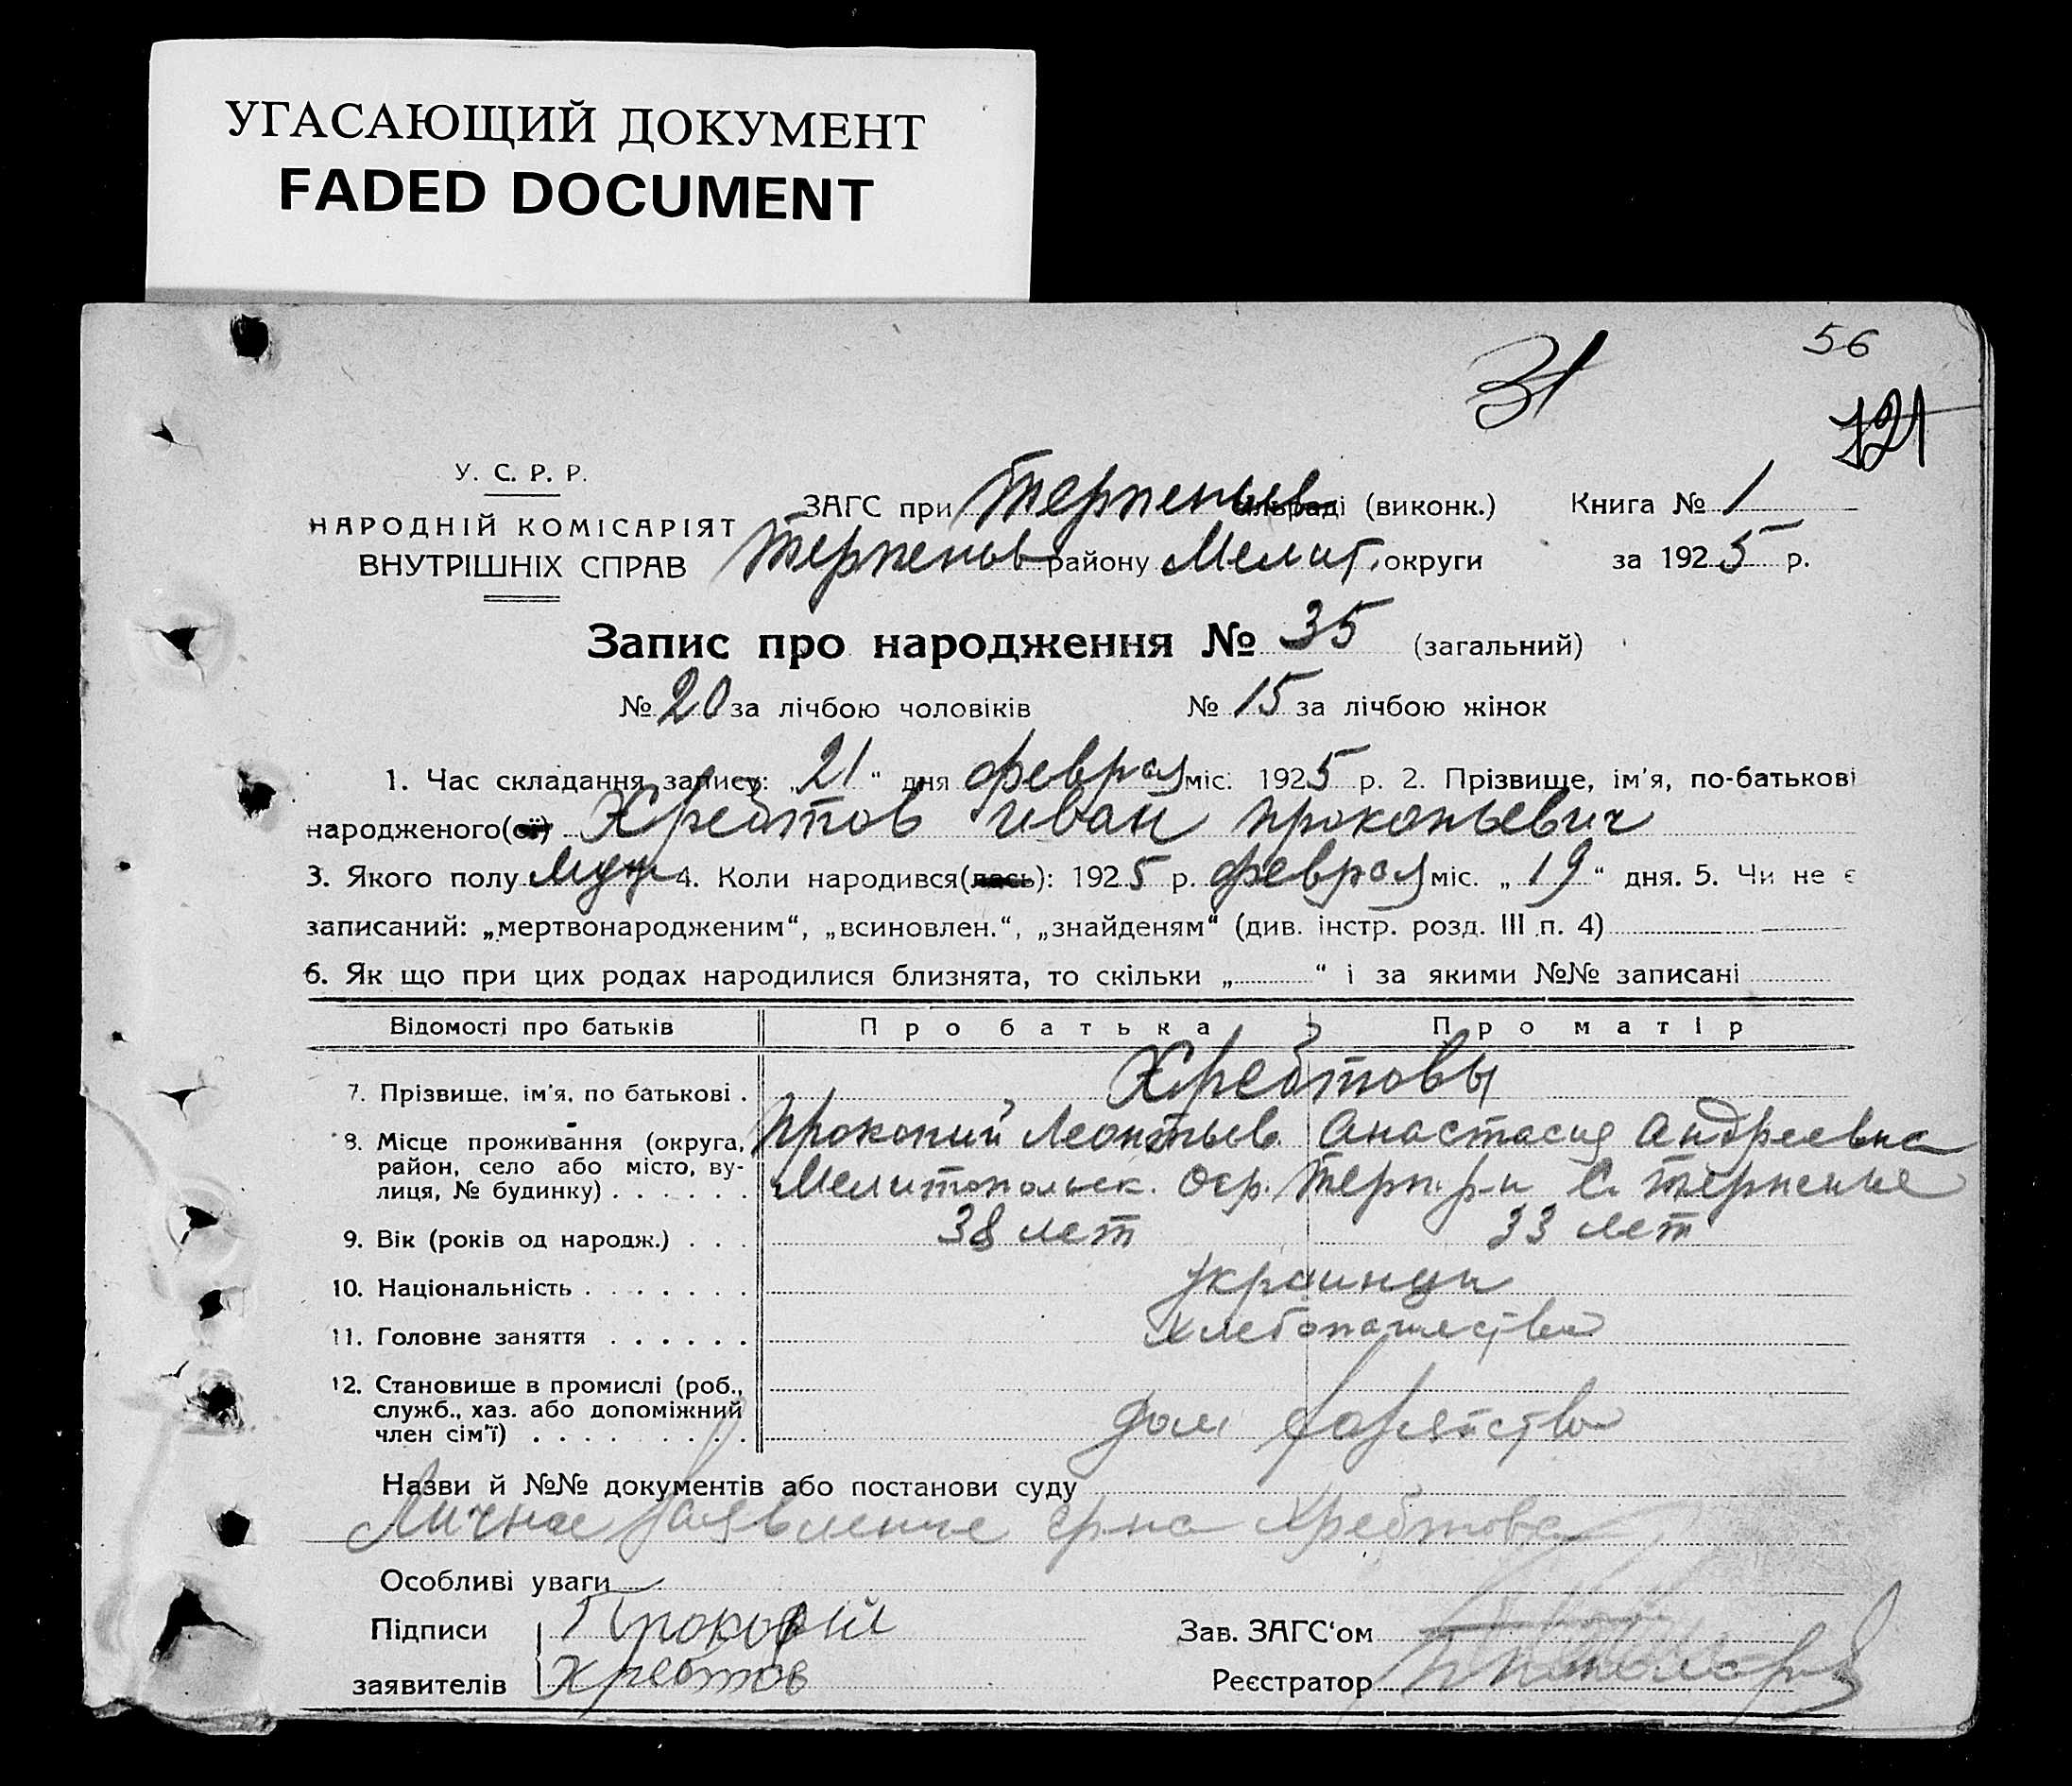 УГАСАЮЩИЙ ДОКУМЕНТ
FADED DOCUMENT
56
31
121
У. С. Р. Р.
НАРОДНІЙ КОМІСАРІЯТ
ВНУТРІШНІХ СПРАВ
ЗАГС при Терпеньев (виконк.) Книга № 1
Терпеньев району Мелит. округи за 1925 р.
Запис про народження № 35 (загальний)
№ 20 за лічбою чоловіків № 15 за лічбою жінок
1. Час складання запису: „21“ дня февраля міс. 1925 р. 2. Прізвище, ім'я, по-батькові
народженого(ої) Хребтов Иван Прокопьевич
3. Якого полу муж 4. Коли народився(лась): 1925 р. февраля міс. „19“ дня. 5. Чи не є
записаний: „мертвонародженим“, „всиновлен.“, „знайденям“ (див. інстр. розд. III п. 4)
6. Як що при цих родах народилися близнята, то скільки „ “ і за якими №№ записані
Відомості про батьків Про батька Про матір
Хребтовы
7. Прізвище, ім'я, по батькові .
Прокопий Леонтьев. Анастасия Андреевна
8. Місце проживання (округа,
район, село або місто, ву-
лиця, № будинку) . . . . . . Мелитопольск. Окр. Терп. р-н С. Терпение
9. Вік (років од народж.) . . . 38 лет 33 лет
10. Національність . . . . . . . украинцы
11. Головне заняття . . . . . . Хлебопашество
12. Становище в промислі (роб.,
служб., хаз. або допоміжний
член сім'ї) . . . . . . . . . дом
Назви й №№ документів або постанови суду
Личное заявление гр-на Хребтова
Особливі уваги
Підписи Прокофій Зав. ЗАГС'ом
заявителів Хребтов Реєстратор